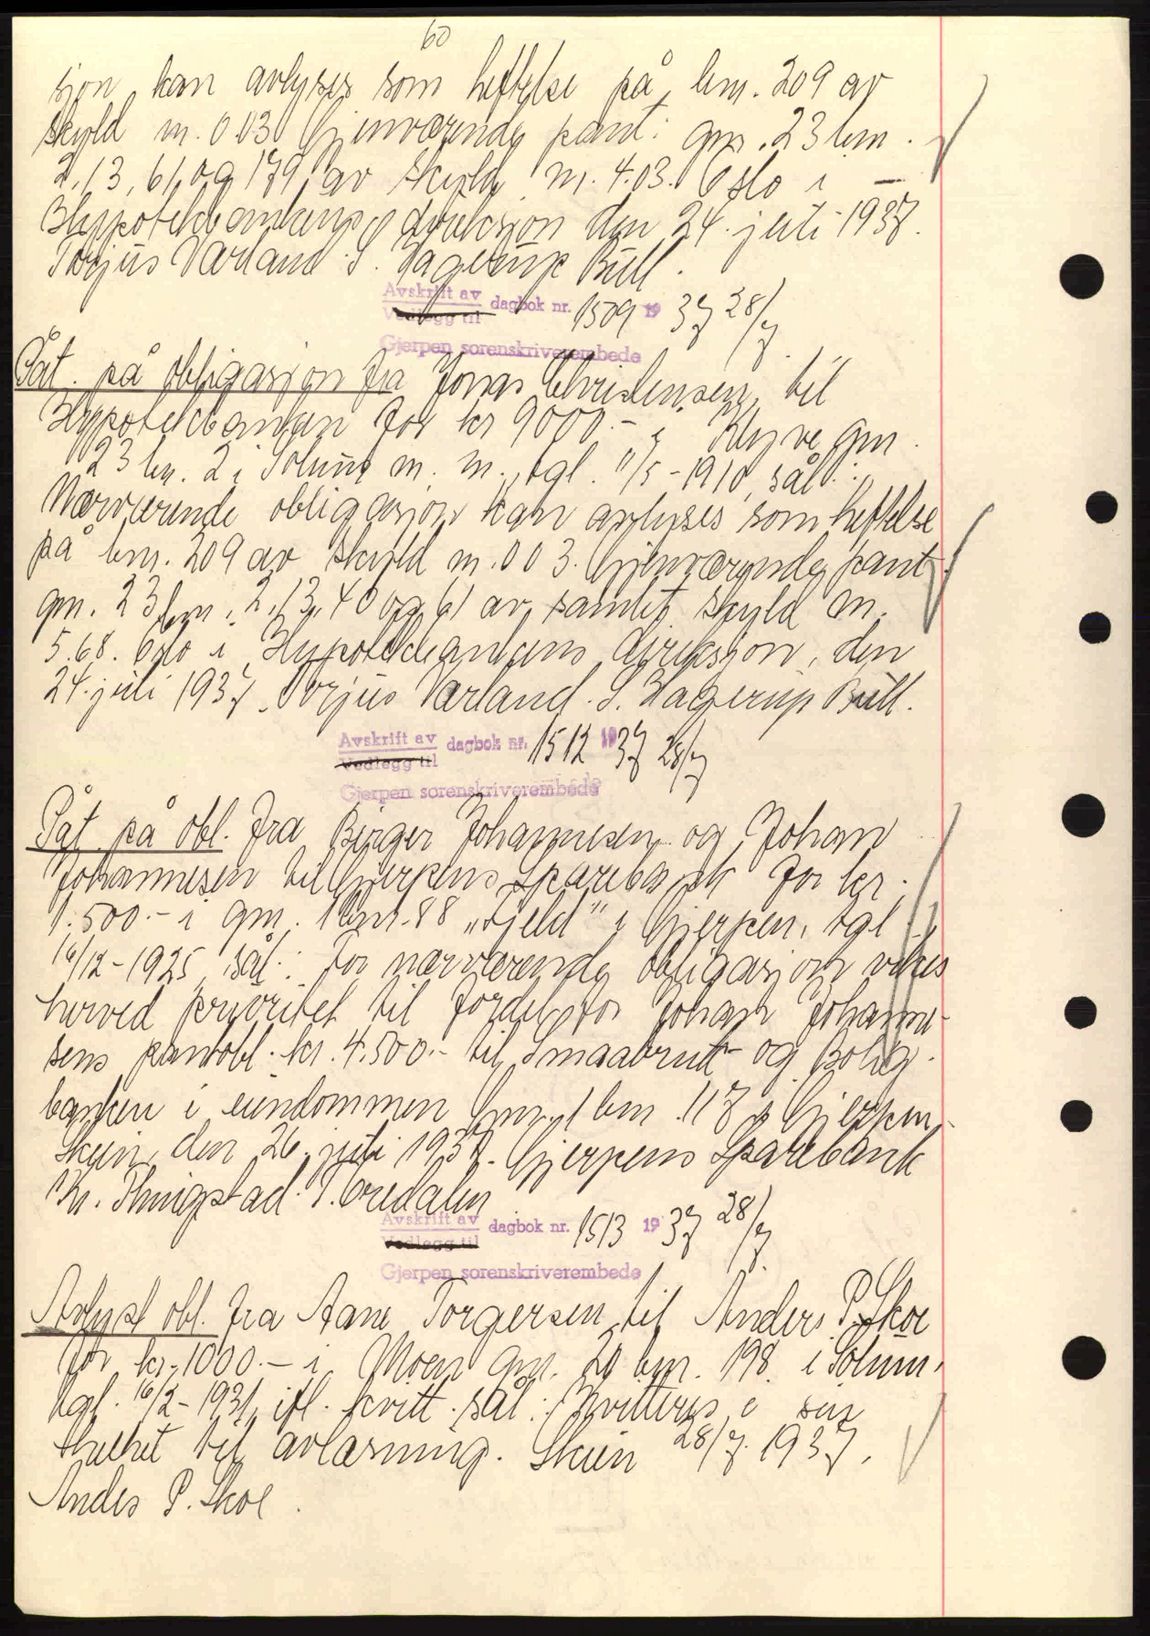 60
sjon kan avlyses som heftelse på bnr. 209 av
skyld m. 0.03. Gjenværende pant: gnr. 23 bnr.
2, 13, 61, og 179 av skyld m. 4.03. Oslo i –
Hypotekbankens direksjon den 24. juli 1937.
Torjus Værland. S. Hagerup Bull.
Avskrift av
Vedlegg til
dagbok nr. 1509 1937 28/7
Gjerpen sorenskriverembede
Påt. på obligasjon fra Jonas Christensen til
Hypotekbanken for kr 9000.- i Klyve gnr.
23 bnr. 2 i Solum m. m., tgl. 11/5-1910, sål.:
Nærværende obligasjon kan avlyses som heftelse
på bnr. 209 av skyld m. 0 03. Gjenværende pant
gnr. 23 bnr. 2, 13, 40 og 61 av samlet skyld m.
5.68. Oslo i Hypotekbankens direksjon, den
24. juli 1937. Torjus Værland. S. Hagerup Bull.
Avskrift av
Vedlegg til
dagbok nr. 1512 1937 28/7
Gjerpen sorenskriverembede
Påt. på obl. fra Birger Johannesen og Johan
Johannesen til Gjerpens Sparebank for kr.
1.500.- i gnr. 1 bnr. 88 „Fjeld" i Gjerpen, tgl.
16/12-1925, sål.: For nærværende obligasjon vikes
herved prioritet til fordel for Johan Johanne-
sens pantobl. kr. 4.500.- til Smaabruk- og Bolig-
banken i eiendommen Gnr. 1 bnr. 117 i Gjerpen.
Skien, den 26. juli 1937. Gjerpens Sparebank
Kr. Thingstad.
Avskrift av
Vedlegg til
dagbok nr. 1513 1937 28/7
Gjerpen sorenskriverembede
Avlyst obl. fra Aane Torgersen til Anders P. Skoe
for kr. 1000.- i Moen gnr. 20 bnr. 198 i Solum,
tgl. 16/2-1931, ifl. kvitt. sål.: Kvitteres i sin
helhet til avlæsning. Skien 28/7. 1937.
Andes P. Skoe.